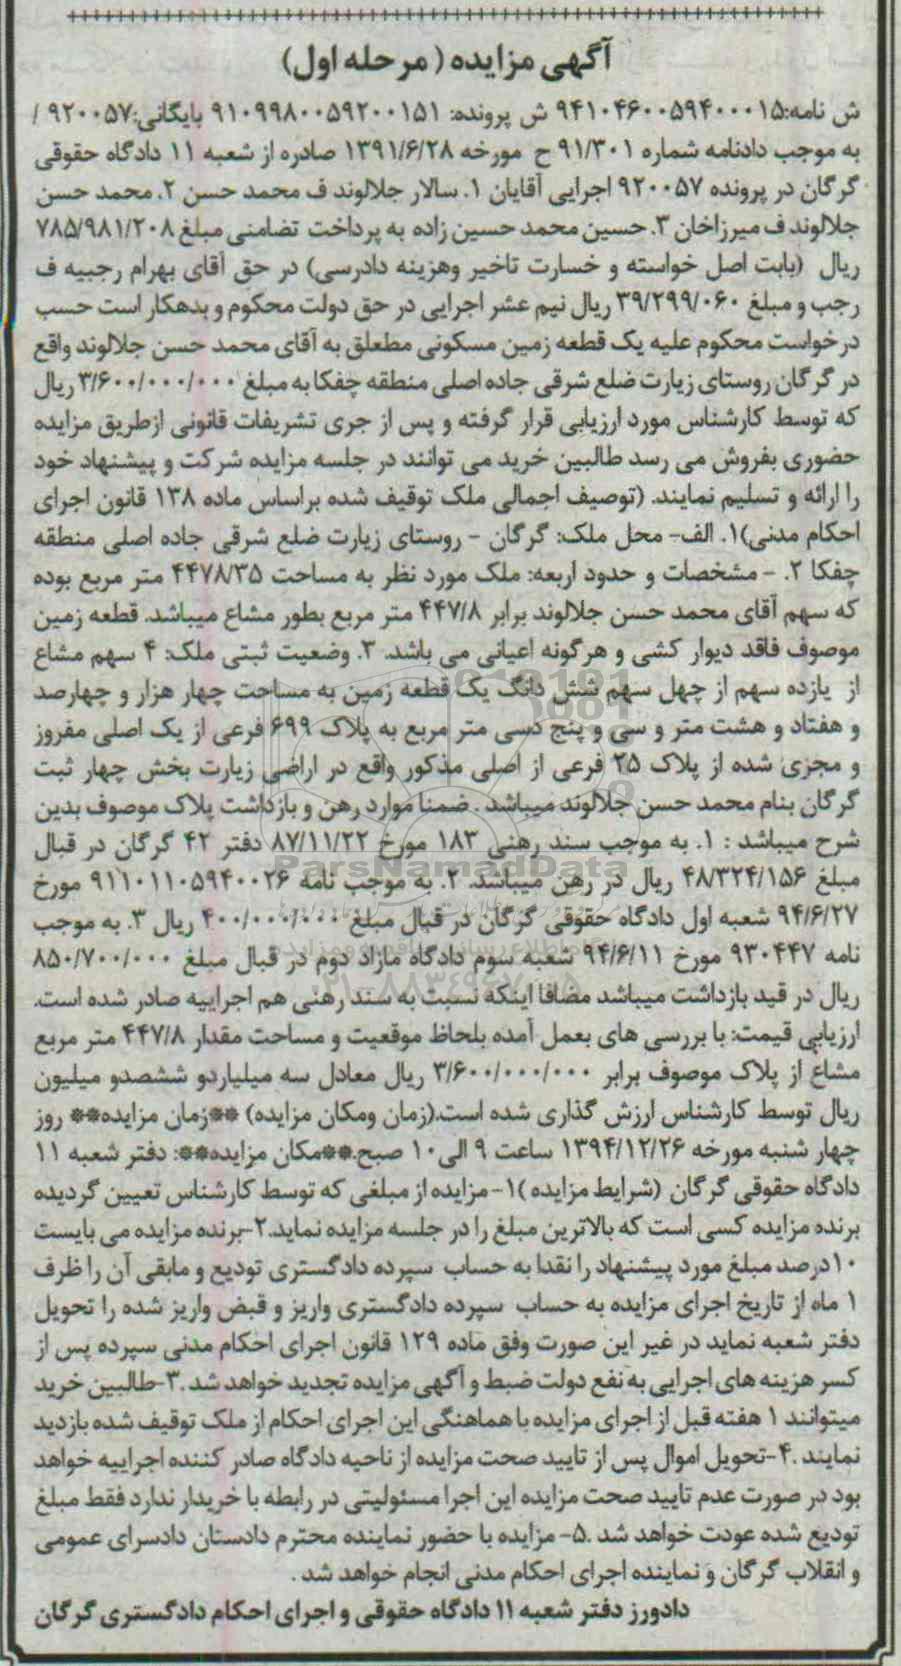 آگهی مزایده (مرحله اول)
ش نامه:۹۴۱۰۴۶۰۰۵۹۴۰۰۰۱۵ ش پرونده: ۹۱۰۹۹۸۰۰۵۹۲۰۰۱۵۱ بایگانی:۹۲۰۰۵۷ /
به موجب دادنامه شماره ۹۱/۳۰۱ ح مورخه ۱۳۹۱/۶/۲۸ صادره از شعبه ۱۱ دادگاه حقوقی
گرگان در پرونده ۹۲۰۰۵۷ اجرایی آقایان ۱. سالار جلالوند ف محمد حسن ۲. محمد حسن
جلالوند ف میرزاخان ۳. حسین محمد حسین زاده به پرداخت تضامنی مبلغ ۷۸۵/۹۸۱/۲۰۸
ریال (بابت اصل خواسته و خسارت تاخیر وهزینه دادرسی) در حق آقای بهرام رجبیه ف
رجب و مبلغ ۳۹/۲۹۹/۰۶۰ ریال نیم عشر اجرایی در حق دولت محکوم و بدهکار است حسب
درخواست محکوم علیه یک قطعه زمین مسکونی مطعلق به آقای محمد حسن جلالوند واقع
در گرگان روستای زیارت ضلع شرقی جاده اصلی منطقه چفکا به مبلغ ۳/۶۰۰/۰۰۰/۰۰۰ ریال
که توسط کارشناس مورد ارزیابی قرار گرفته و پس از جری تشریفات قانونی ازطریق مزایده
حضوری بفروش می رسد طالبین خرید می توانند در جلسه مزایده شرکت و پیشنهاد خود
را ارائه و تسلیم نمایند. (توصیف اجمالی ملک توقیف شده براساس ماده ۱۳۸ قانون اجرای
احکام مدنی)۱. الف- محل ملک: گرگان - روستای زیارت ضلع شرقی جاده اصلی منطقه
چفکا ۲. - مشخصات و حدود اربعه: ملک مورد نظر به مساحت ۴۴۷۸/۳۵ متر مربع بوده
که سهم آقای محمد حسن جلالوند برابر ۴۴۷/۸ متر مربع بطور مشاع میباشد. قطعه زمین
موصوف فاقد دیوار کشی و هرگونه اعیانی می باشد. ۳. وضعیت ثبتی ملک: ۴ سهم مشاع
از یازده سهم از چهل سهم شش دانگ یک قطعه زمین به مساحت چهار هزار و چهارصد
و هفتاد و هشت متر و سی و پنج دسی متر مربع به پلاک ۶۹۹ فرعی از یک اصلی مفروز
و مجزی شده از پلاک ۲۵ فرعی از اصلی مذکور واقع در اراضی زیارت بخش چهار ثبت
گرگان بنام محمد حسن جلالوند میباشد . ضمنا موارد رهن و بازداشت پلاک موصوف بدین
شرح میباشد : ۱. به موجب سند رهنی ۱۸۳ مورخ ۸۷/۱۱/۲۲ دفتر ۴۲ گرگان در قبال
ParsNamadData
مبلغ ۴۸/۳۲۴/۱۵۶ ریال در رهن میباشد. ۲. به موجب نامه ۹۱۱۰۱۱۰۵۹۴۰۰۲۶ مورخ
۹۴/۶/۲۷ شعبه اول دادگاه حقوقی گرگان در قبال مبلغ ۴۰۰/۰۰۰/۰۰۰ ریال ۳. به موجب
نامه ۹۳۰۴۴۷ مورخ ۹۴/۶/۱۱ شعبه سوم دادگاه مازاد دوم در قبال مبلغ ۸۵۰/۷۰۰/۰۰۰
ریال در قید بازداشت میباشد مضافا اینکه نسبت به سند رهنی هم اجراییه صادر شده است.
ارزیابی قیمت: با بررسی های بعمل آمده بلحاظ موقعیت و مساحت مقدار ۴۴۷/۸ متر مربع
مشاع از پلاک موصوف برابر ۳/۶۰۰/۰۰۰/۰۰۰ ریال معادل سه میلیاردو ششصدو میلیون
ریال توسط کارشناس ارزش گذاری شده است.(زمان ومکان مزایده) **زمان مزایده** روز
چهار شنبه مورخه ۱۳۹۴/۱۲/۲۶ ساعت ۹ الی۱۰ صبح.**مکان مزایده**: دفتر شعبه ۱۱
دادگاه حقوقی گرگان (شرایط مزایده )۱- مزایده از مبلغی که توسط کارشناس تعیین گردیده
برنده مزایده کسی است که بالاترین مبلغ را در جلسه مزایده نماید.۲-برنده مزایده می بایست
۱۰درصد مبلغ مورد پیشنهاد را نقدا به حساب سپرده دادگستری تودیع و مابقی آن را ظرف
۱ ماه از تاریخ اجرای مزایده به حساب سپرده دادگستری واریز و قبض واریز شده را تحویل
دفتر شعبه نماید در غیر این صورت وفق ماده ۱۲۹ قانون اجرای احکام مدنی سپرده پس از
کسر هزینه های اجرایی به نفع دولت ضبط و آگهی مزایده تجدید خواهد شد .۳-طالبین خرید
میتوانند ۱ هفته قبل از اجرای مزایده با هماهنگی این اجرای احکام از ملک توقیف شده بازدید
نمایند .۴-تحویل اموال پس از تایید صحت مزایده از ناحیه دادگاه صادر کننده اجراییه خواهد
بود در صورت عدم تایید صحت مزایده این اجرا مسئولیتی در رابطه با خریدار ندارد فقط مبلغ
تودیع شده عودت خواهد شد .۵- مزایده با حضور نماینده محترم دادستان دادسرای عمومی
و انقلاب گرگان و نماینده اجرای احکام مدنی انجام خواهد شد .
دادورز دفتر شعبه ۱۱ دادگاه حقوقی و اجرای احکام دادگستری گرگان